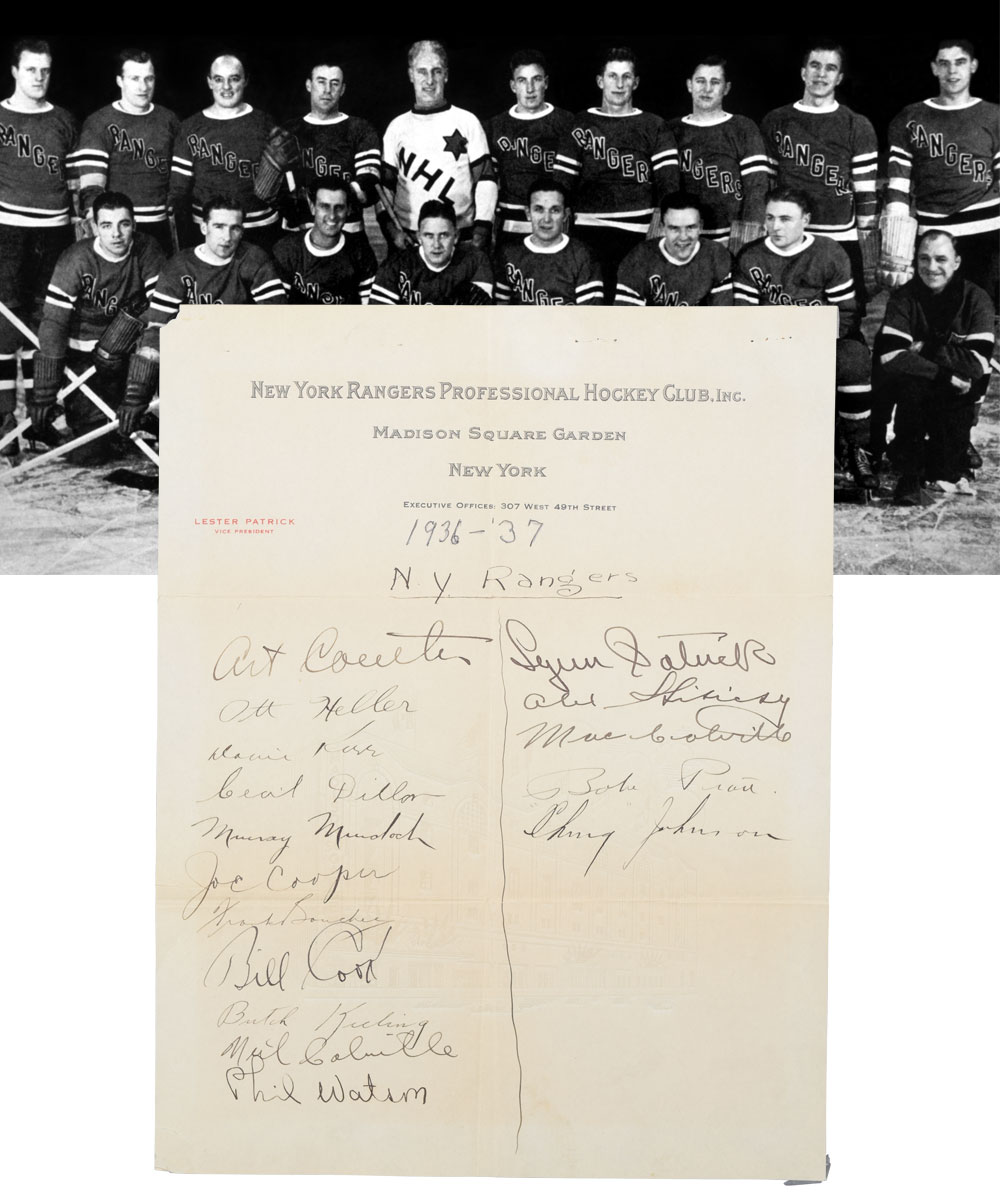 RANGE
RANGE
RANGE
RANGE
NHL
RANGE
RANGERS
RANGERS
RANGERS
RANGERS
RANG
RAN
RAN
RANG
RANGE
RAN
RANG
NEW YORK RANGERS PROFESSIONAL HOCKEY CLUB, INC.
MADISON SQUARE GARDEN
NEW YORK
EXECUTIVE OFFICES: 307 WEST 49TH STREET
LESTER PATRICK
VICE PRESIDENT
1936-'37
N.Y. Rangers
Art Coulter
Ott Heller
Davie Kerr
Cecil Dillon
Murray Murdoch
Joe Cooper
Frank Boucher
Bill Cook
Butch Keeling
Neil Colville
Phil Watson
Lynn Patrick
Alex Shibicky
Mac Colville
Babe Pratt.
"Ching" Johnson